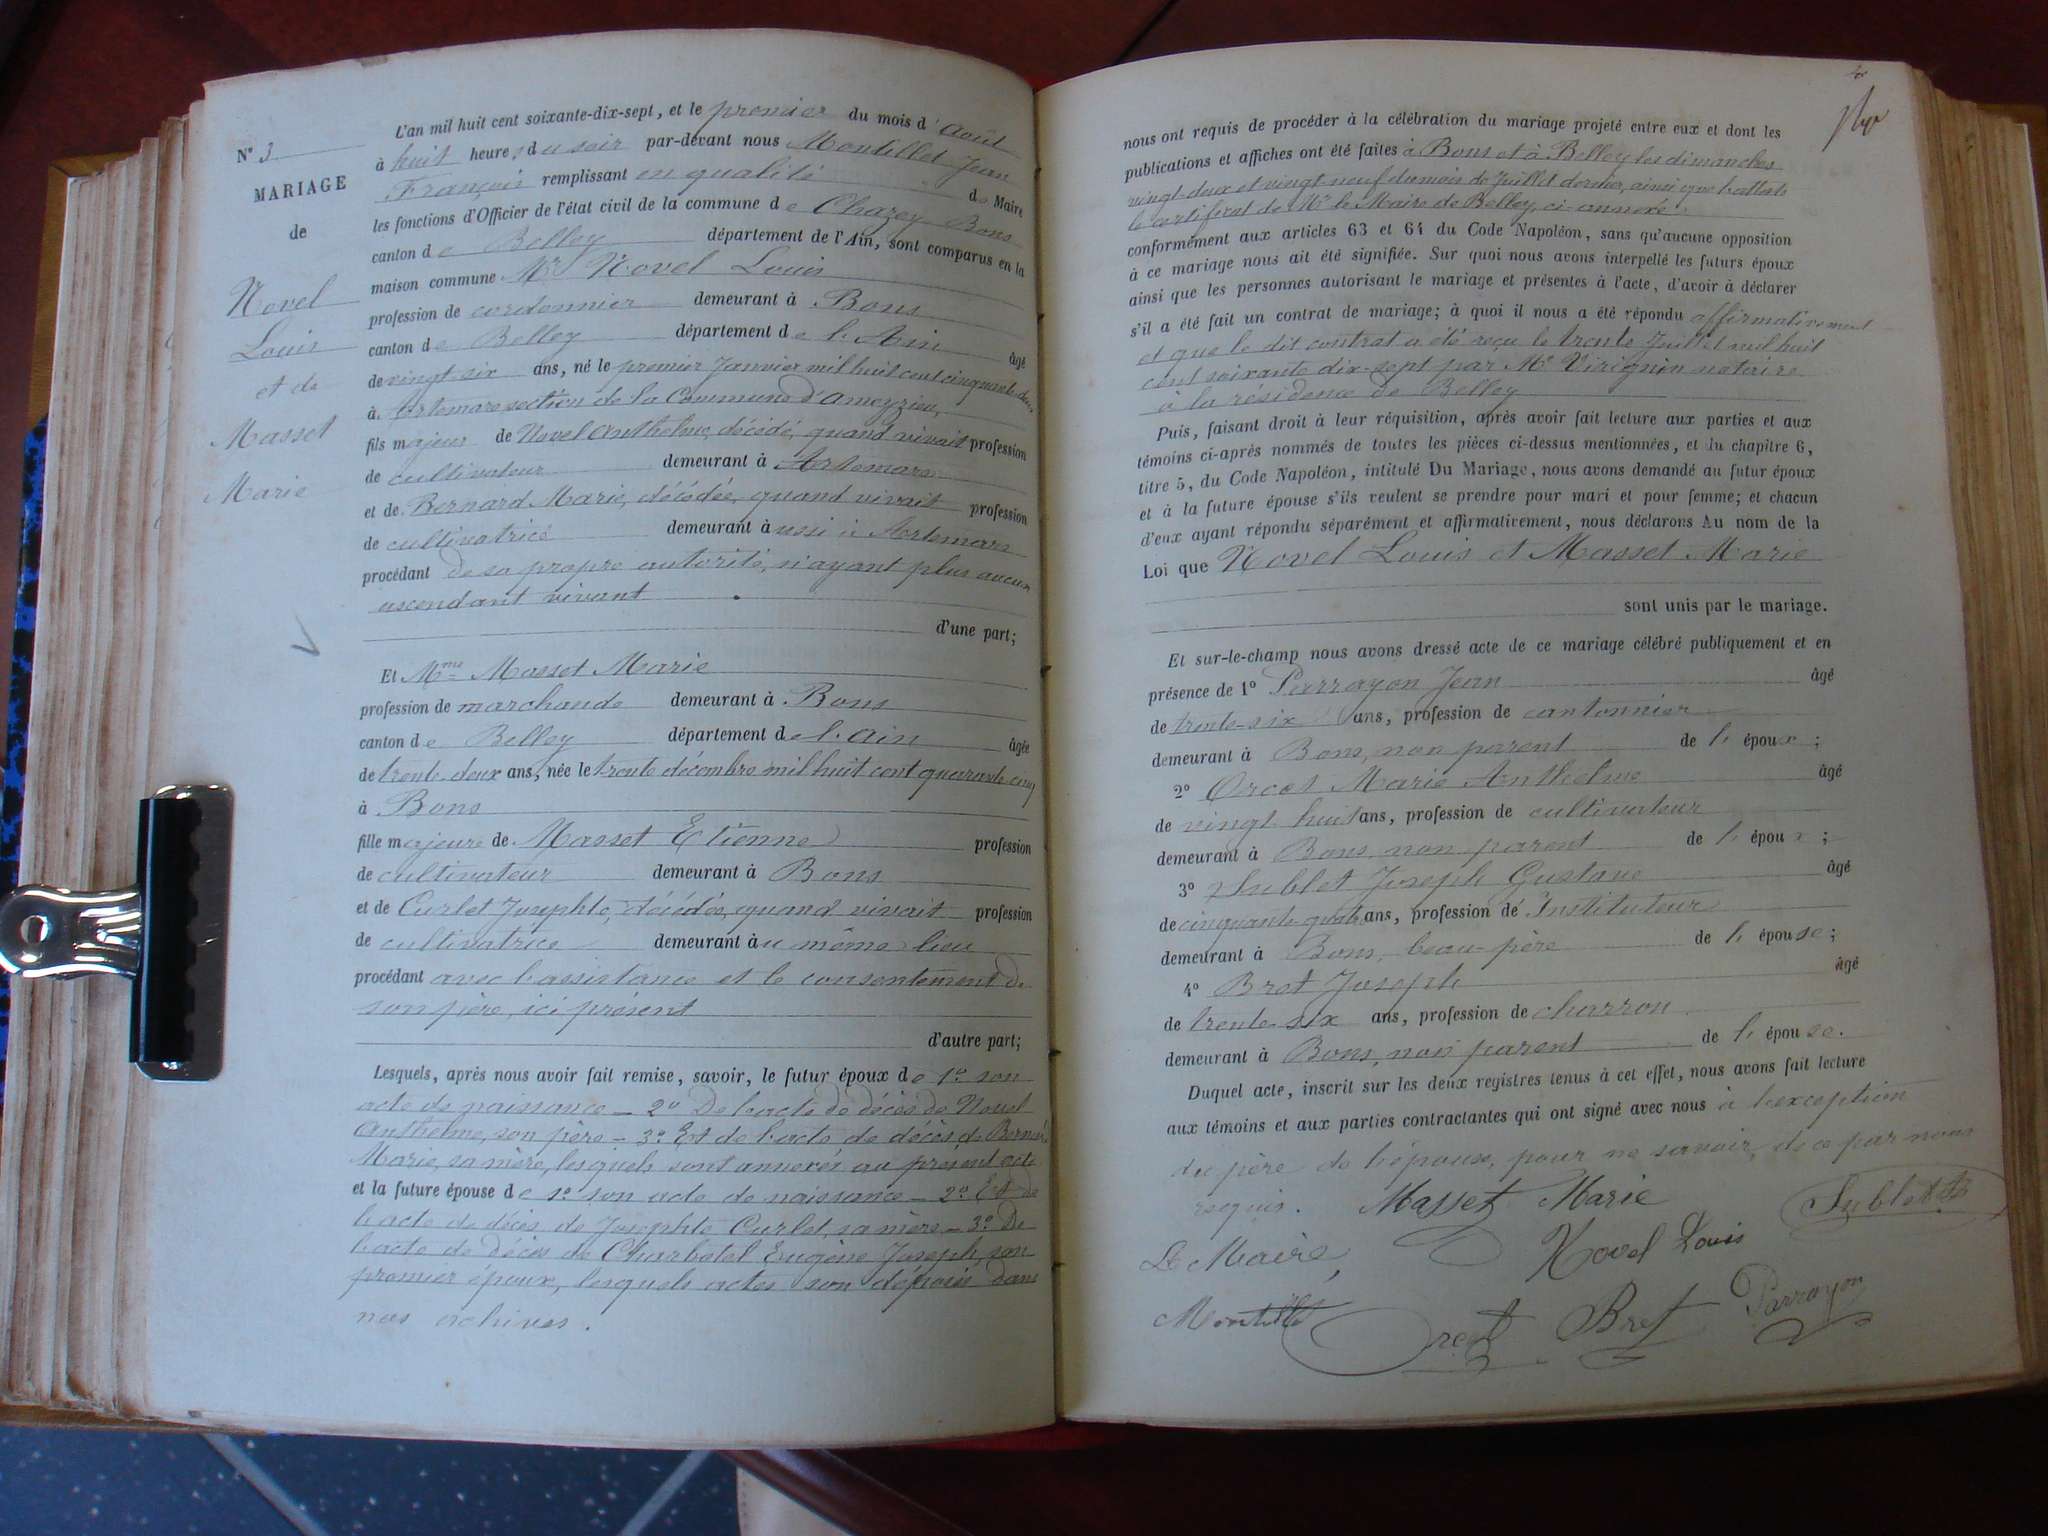 N° 3
MARIAGE
de
Novel
Louis
et de
Masset
Marie
L'an mil huit cent soixante-dix-sept, et le premier du mois d'Août
à huit heures du soir par-devant nous Montillet Jean
François remplissant en qualité de Maire
les fonctions d'Officier de l'état civil de la commune de Chazey Bons
canton de Belley département de l'Ain, sont comparus en la
maison commune Mr Novel Louis
profession de cordonnier demeurant à Bons
canton de Belley département de l'Ain âgé
de vingt-six ans, né le premier Janvier mil huit cent cinquante-deux
à Artemare section de la Commune d'Ameyzieu,
fils majeur de Novel Anthelme, décédé, quand vivait profession
de cultivateur demeurant à Artemare
et de Bernard Marie, décédée, quand vivait profession
de cultivatrice demeurant aussi à Artemare
procédant de sa propre autorité, n'ayant plus aucun
ascendant vivant
d'une part;
Et Mme Masset Marie
profession de marchande demeurant à Bons
canton de Belley département de l'ain âgée
de trente-deux ans, née le trente décembre mil huit cent quarante cinq
à Bons
fille majeure de Masset Etienne profession
de cultivateur demeurant à Bons
et de Curlet Josephte, décédée, quand vivait profession
de cultivatrice demeurant au même lieu
procédant avec l'assistance et le consentement de
son père, ici présent
d'autre part;
Lesquels, après nous avoir fait remise, savoir, le futur époux de 1° son
acte de naissance — 2° De l'acte de décès de Novel
Anthelme, son père — 3° Et de l'acte de décès de Bernard
Marie, sa mère, lesquels sont annexés au présent acte
et la future épouse de 1° son acte de naissance — 2° Et de
l'acte de décès de Josephte Curlet, sa mère — 3° De
l'acte de décès de Charbotel Eugène Joseph, son
premier époux, lesquels actes son déposés dans
nos achives.
nous ont requis de procéder à la célébration du mariage projeté entre eux et dont les
publications et affiches ont été faites à Bons et à Belley les dimanches
vingt-deux et vingt neuf du mois de Juillet dernier, ainsi que l'atteste
le certificat de Mr le Maire de Belley, ci-annexé.
conformément aux articles 63 et 64 du Code Napoléon, sans qu'aucune opposition
à ce mariage nous ait été signifiée. Sur quoi nous avons interpellé les futurs époux
ainsi que les personnes autorisant le mariage et présentes à l'acte, d'avoir à déclarer
s'il a été fait un contrat de mariage; à quoi il nous a été répondu affirmativement
et que le dit contrat a été reçu le trente Juillet mil huit
cent soixante dix-sept par Me Virignin notaire
à la résidence de Belley
Puis, faisant droit à leur réquisition, après avoir fait lecture aux parties et aux
témoins ci-après nommés de toutes les pièces ci-dessus mentionnées, et du chapitre 6,
titre 5, du Code Napoléon, intitulé Du Mariage, nous avons demandé au futur époux
et à la future épouse s'ils veulent se prendre pour mari et pour femme; et chacun
d'eux ayant répondu séparément et affirmativement, nous déclarons Au nom de la
Loi que Novel Louis et Masset Marie
sont unis par le mariage.
Et sur-le-champ nous avons dressé acte de ce mariage célébré publiquement et en
présence de 1° Parrayon Jean âgé
de trente-six ans, profession de cantonnier
demeurant à Bons, non parent de l'époux;
2° Orcet Marie Anthelme âgé
de vingt huit ans, profession de cultivateur
demeurant à Bons, non parent de l'époux;
3° Sublet Joseph Gustave âgé
de cinquante-quatre ans, profession de Instituteur
demeurant à Bons, beau-père de l'épouse;
4° Bret Joseph âgé
de trente-six ans, profession de charron
demeurant à Bons, non parent de l'épouse.
Duquel acte, inscrit sur les deux registres tenus à cet effet, nous avons fait lecture
aux témoins et aux parties contractantes qui ont signé avec nous à l'exception
du père de l'épouse, pour ne savoir, de ce par nous
requis. Masset Marie Sublet
Le Maire, Novel Louis
Montillet Orcet Bret Parrayon